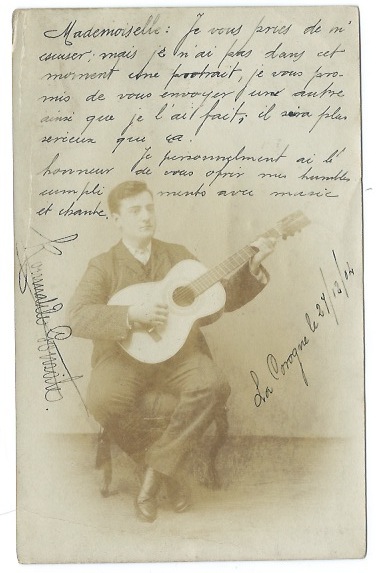 Mademoiselle: Je vous pries de m'
escuser; mais je n'ai pas dans cet
moment une portrait, je vous pro-
mis de vous envoyer une autre
ainsi que je l'ait fait; il sera plus
serieux que ça.
Je personnelment ai lé
honneur de vous ofrir mes humbles
cumpliments avec music
et chante.
La Corogne le 27/12/04